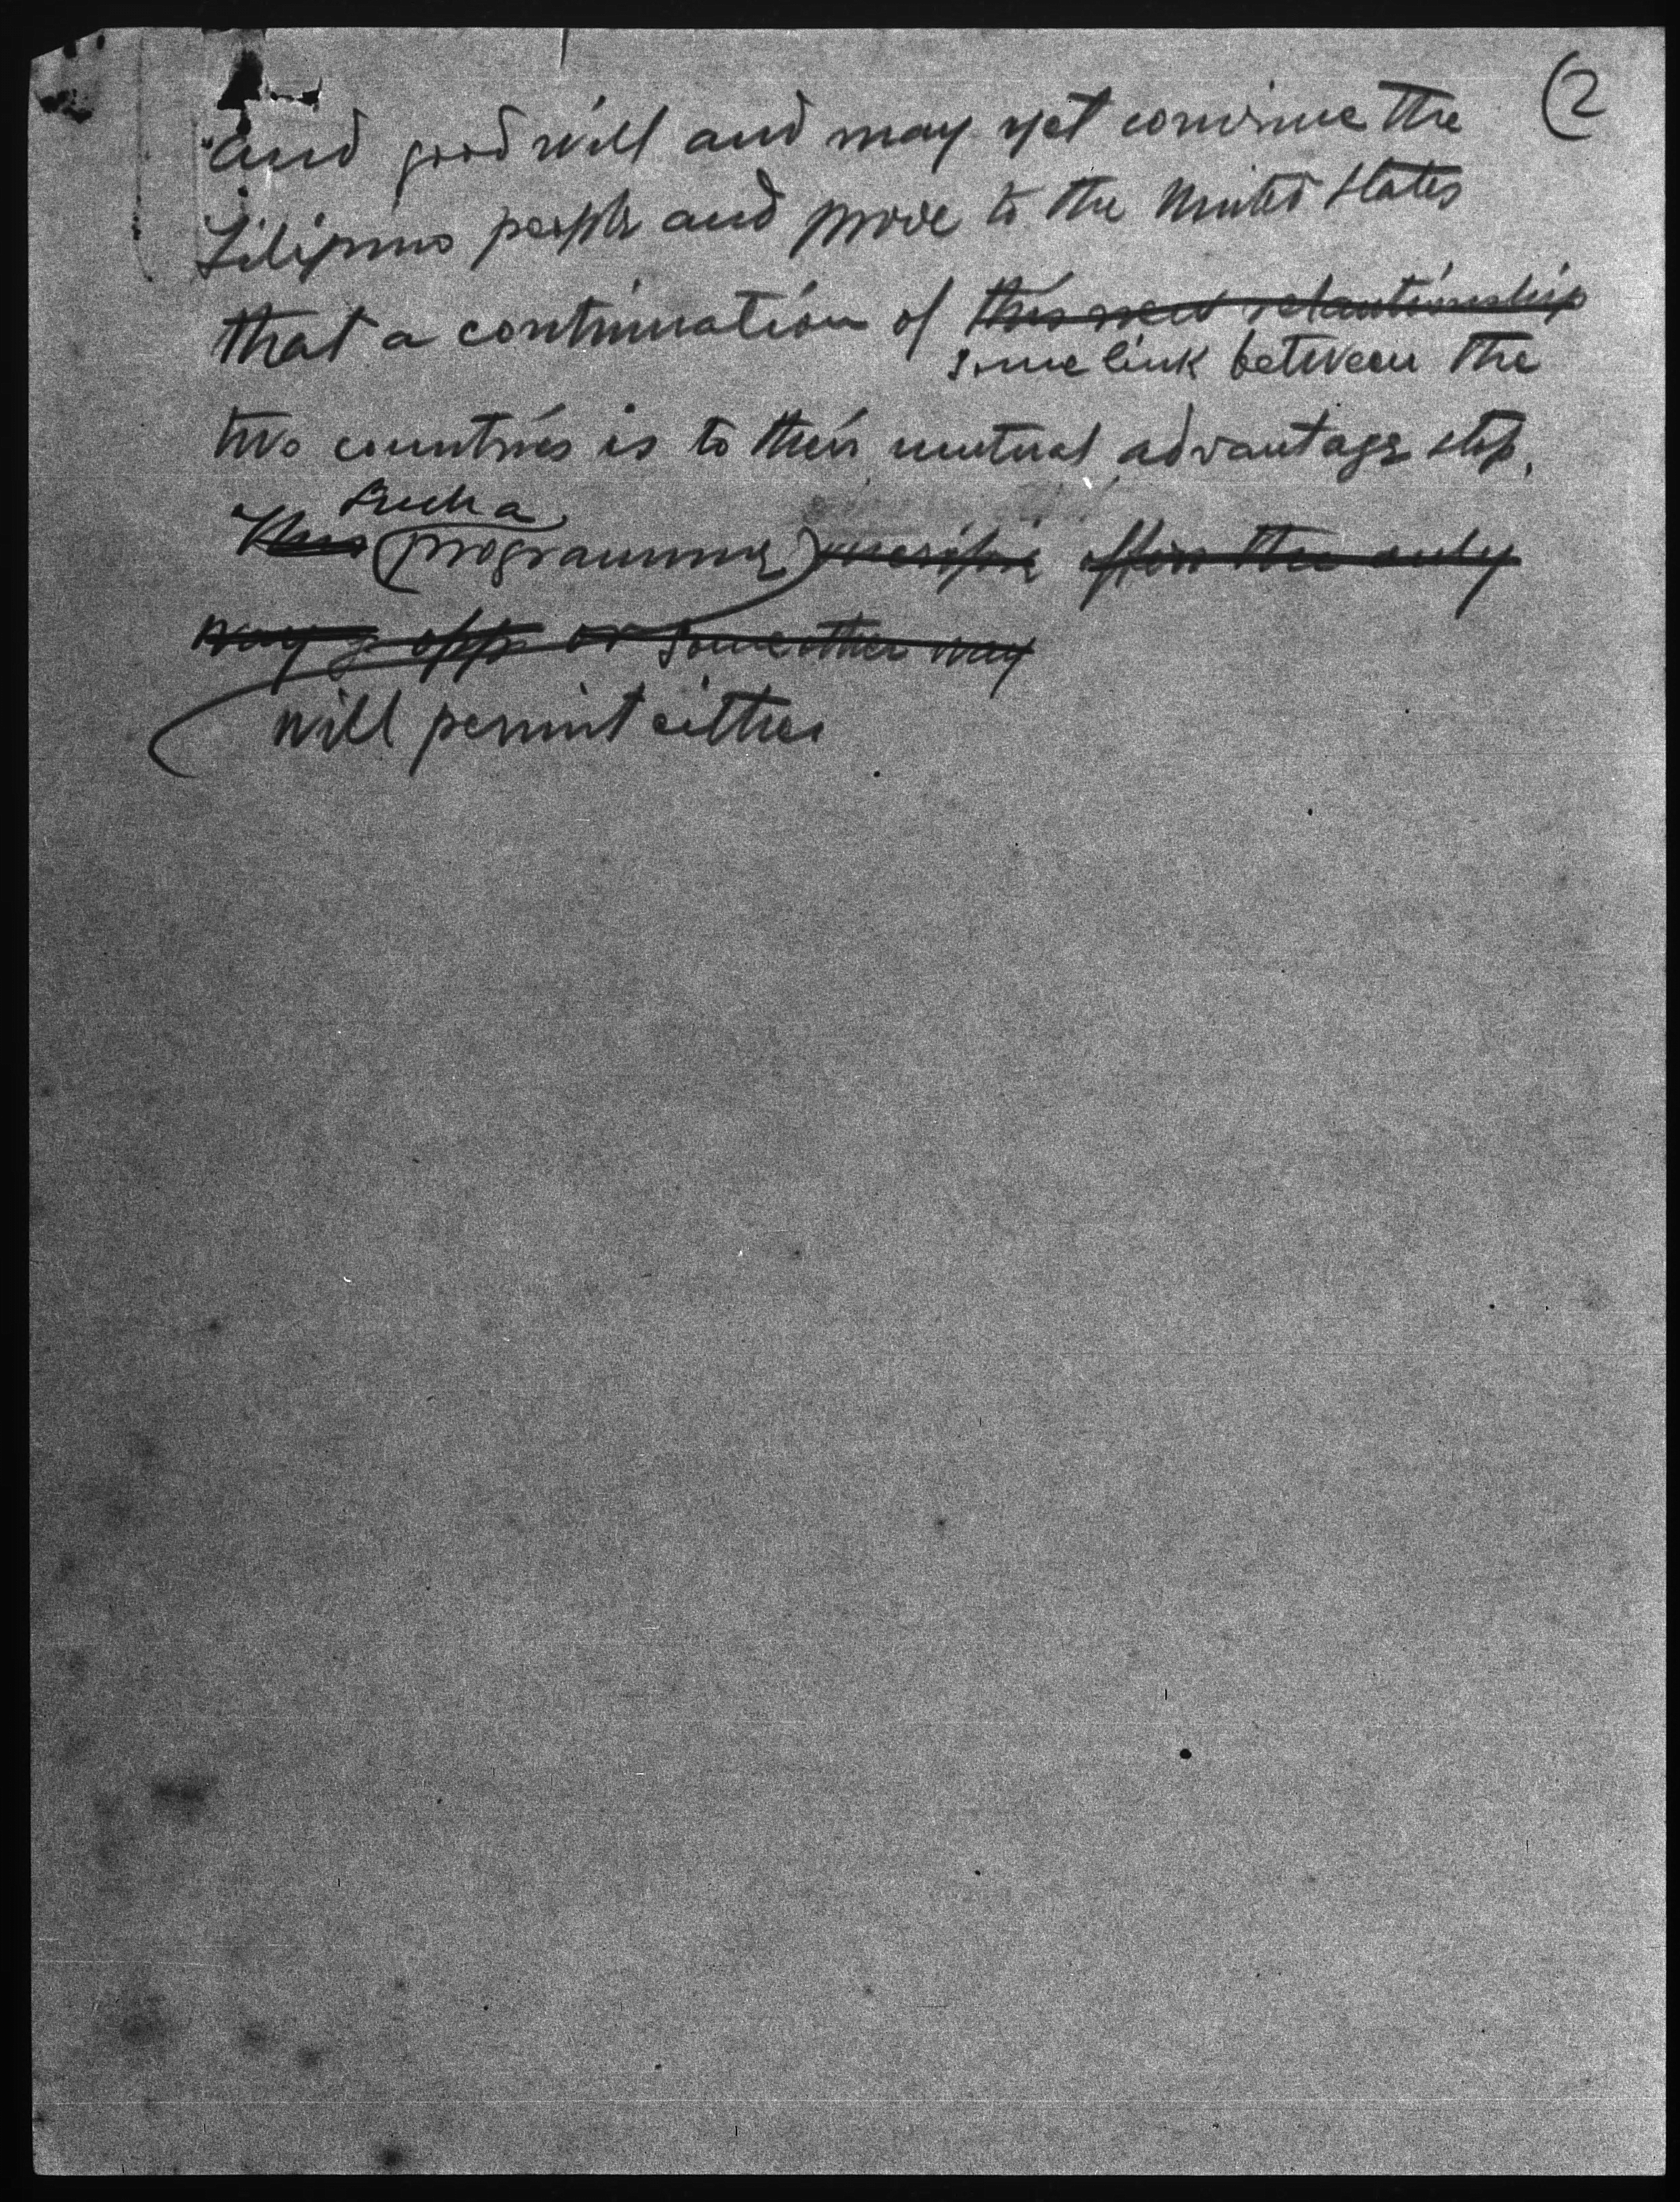 2
and good will and may yet convince the
Filipino people and prove to the United States
that a continuation of this new relautionship
some link between the
two countries is to their mutual advantage stp.
Such a
This (programme) offers the only
way opp or some other way
will permit either